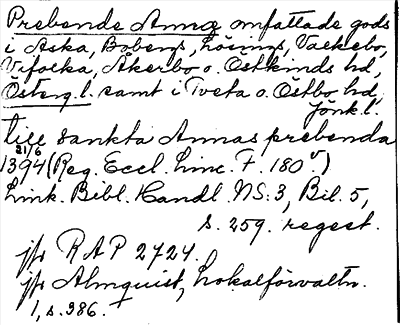 Prebende Anna omfattade gods
i Aska, Bobergs, Lösings, Valkebo,
Vifolka, Åkerbo o. Östkinds hd,
Österg.l. samt i Tveta o. Östbo hd,
Jönk.l.
till sankta Annas prebenda
21/6
1394 (Reg. Eccl. Linc. F. 180 v)
Link. Bibl. Handl. NS. 3, Bil. 5,
s. 259. regest.
jfr RAP 2724.
jfr Almquist, Lokalförvaltn.
1, s. 386.